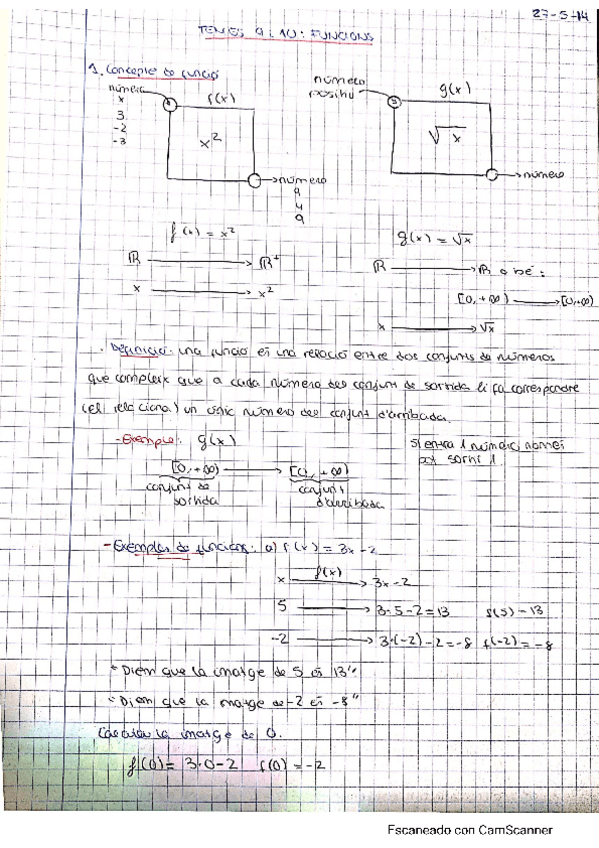 27-5-14
TEMES 9 i 10: FUNCIONS
1. Concepte de funció
número
x
3
-2
-3
f(x)
x²
número
9
4
9
número
positiu
g(x)
√x
número
f(x) = x²
ℝ → ℝ⁺
x → x²
g(x) = √x
ℝ → ℝ o bé:
[0, +∞) → [0, +∞)
x → √x
· Definició: una funció és una relació entre dos conjunts de números
que compleix que a cada número del conjunt de sortida li fa correspondre
(el relaciona) un únic número del conjunt d'arribada.
- Exemple: g(x)
[0, +∞) → [0, +∞)
conjunt de
sortida
conjunt
d'arribada
Si entra 1 número, només
pot sortir 1.
- Exemples de funcions: a) f(x) = 3x - 2
x f(x) → 3x - 2
5 → 3·5 - 2 = 13 f(5) = 13
-2 → 3·(-2) - 2 = -8 f(-2) = -8
"Diem que la imatge de 5 és 13"
"Diem que la imatge de -2 és -8"
Calculeu la imatge de 0.
f(0) = 3·0 - 2 f(0) = -2
Escaneado con CamScanner